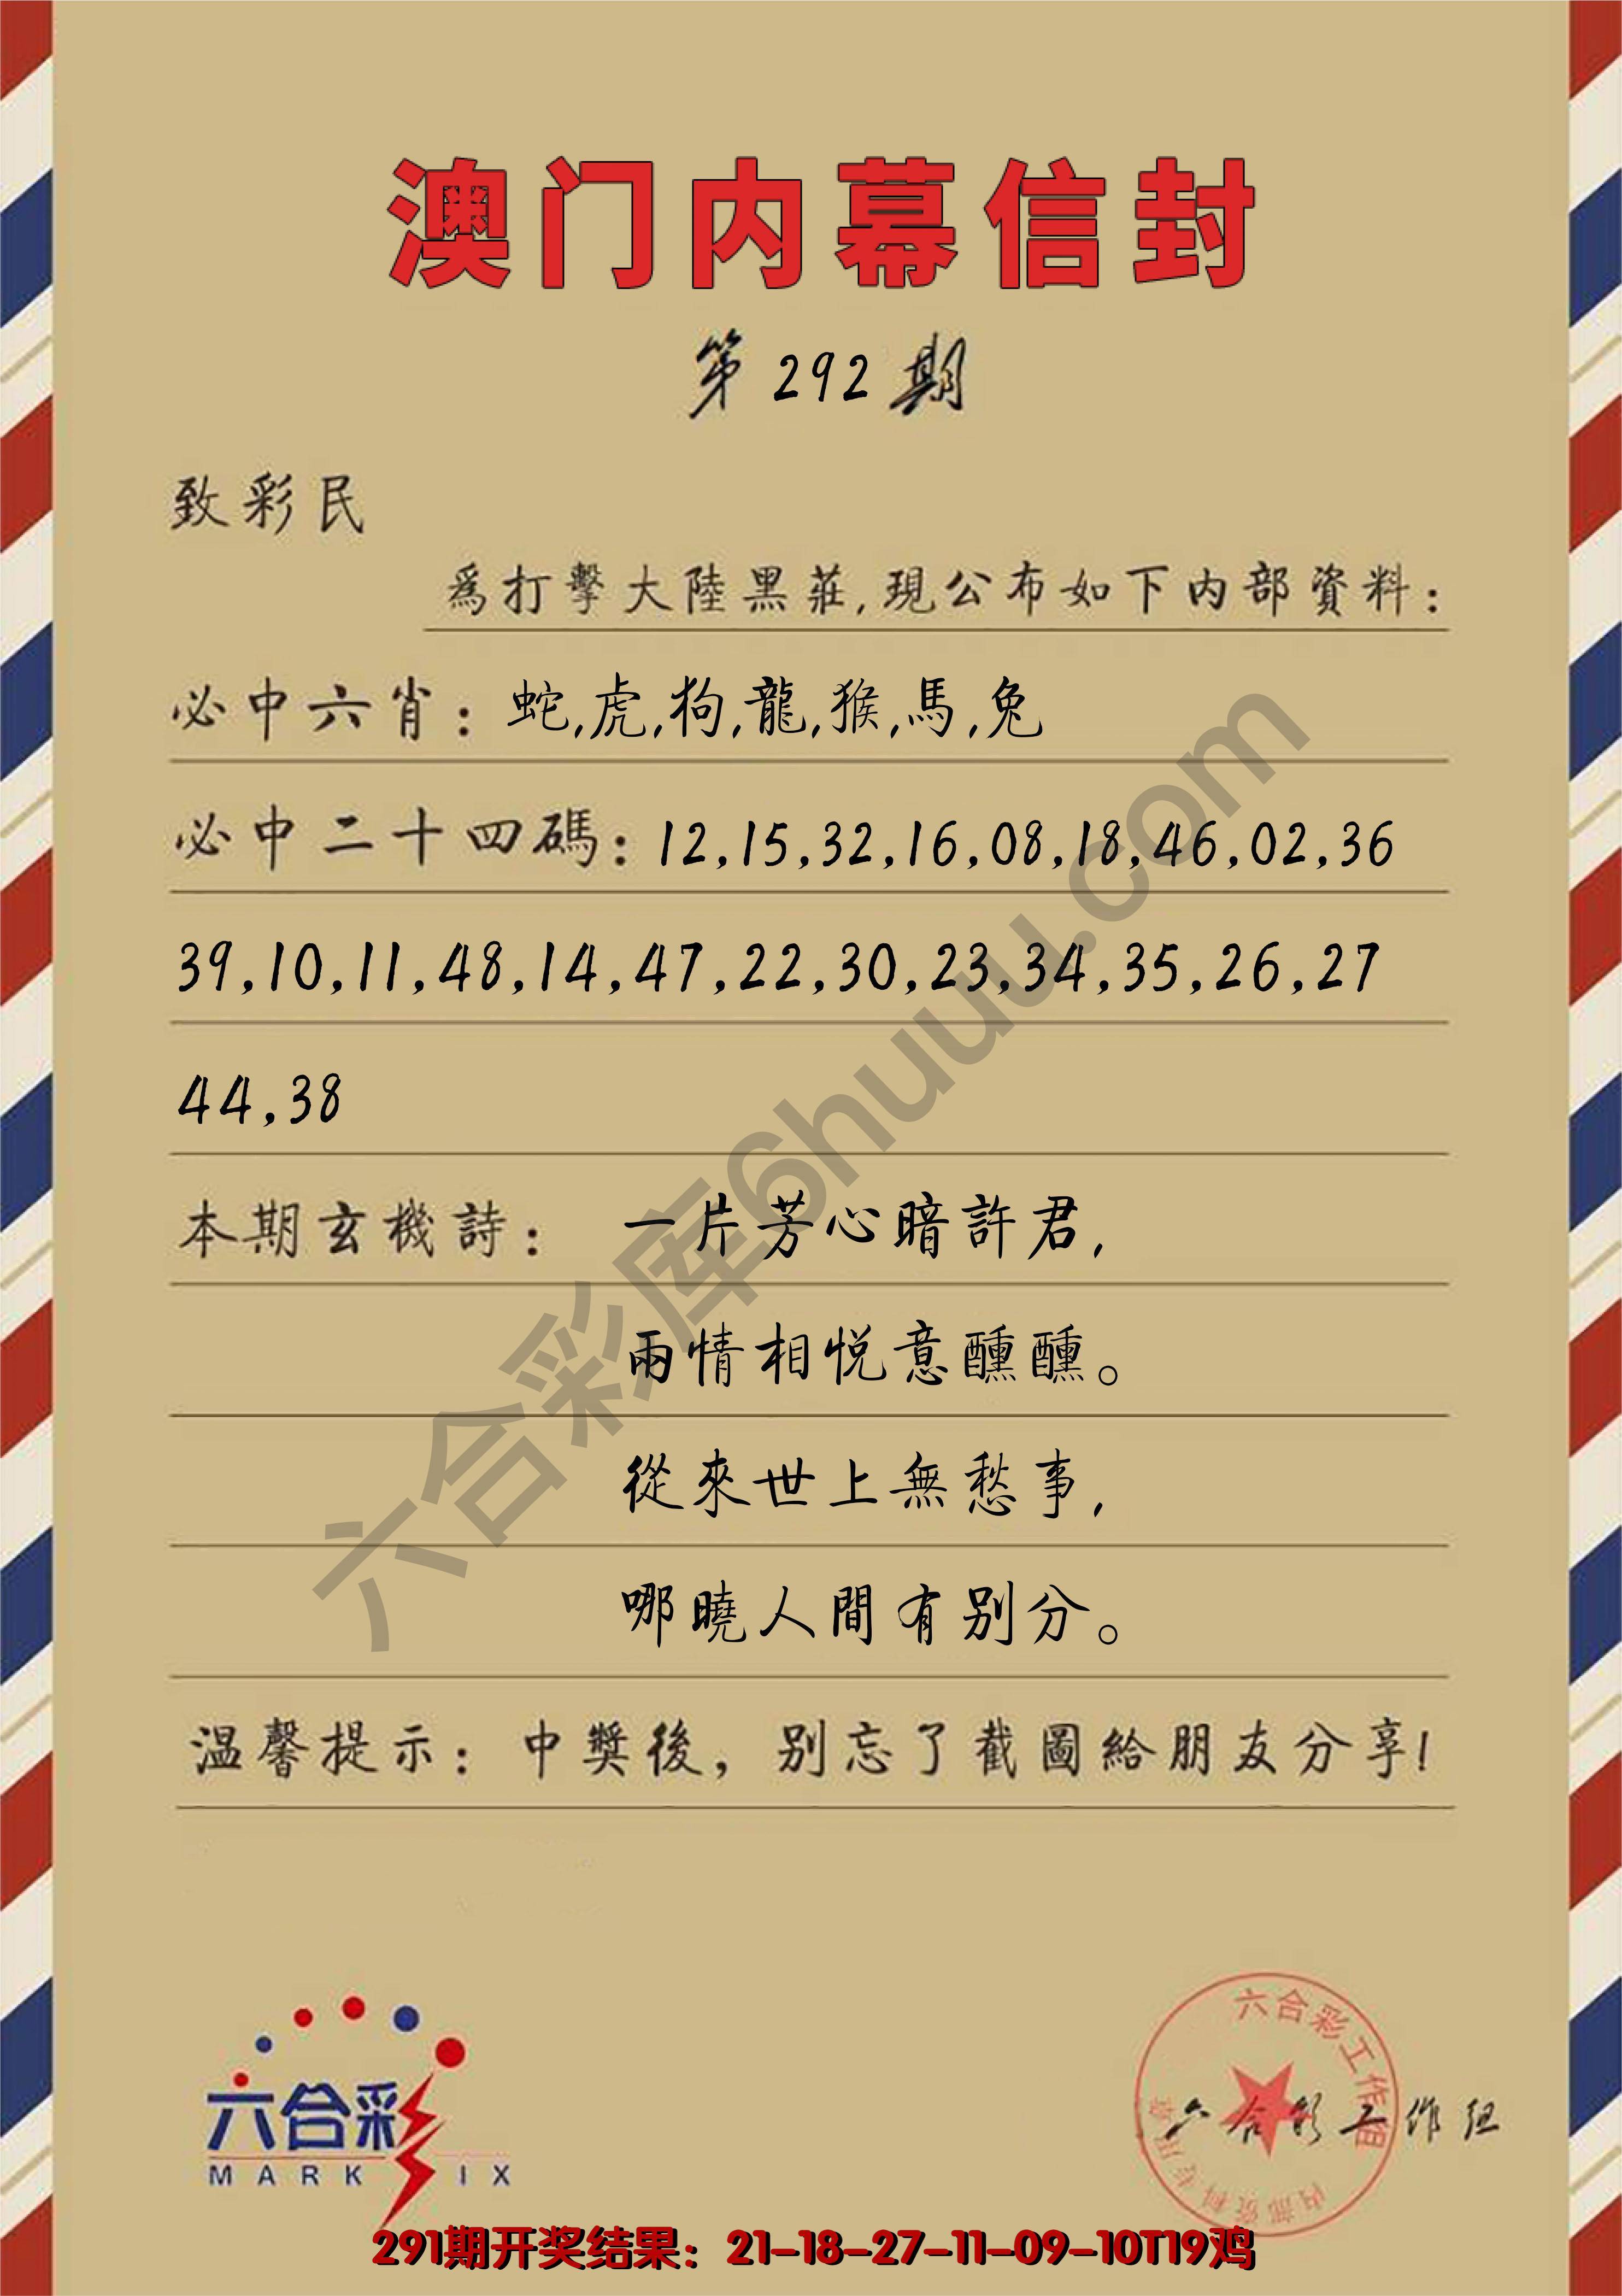 澳门内幕信封
第292期
致彩民
爲打擊大陸黑莊,現公布如下内部資料:
必中六肖:蛇,虎,狗,龍,猴,馬,兔
必中二十四碼:12,15,32,16,08,18,46,02,36
39,10,11,48,14,47,22,30,23,34,35,26,27
44,38
本期玄機詩: 一片芳心暗許君,
兩情相悦意醺醺。
從來世上無愁事,
哪曉人間有别分。
温馨提示:中獎後,别忘了截圖給朋友分享!
六合彩库6huuu.com
六合彩
MARK IX
六合彩工作组
内部资料专用章
六合彩工作组
291期开奖结果:21-18-27-11-09-10T19鸡